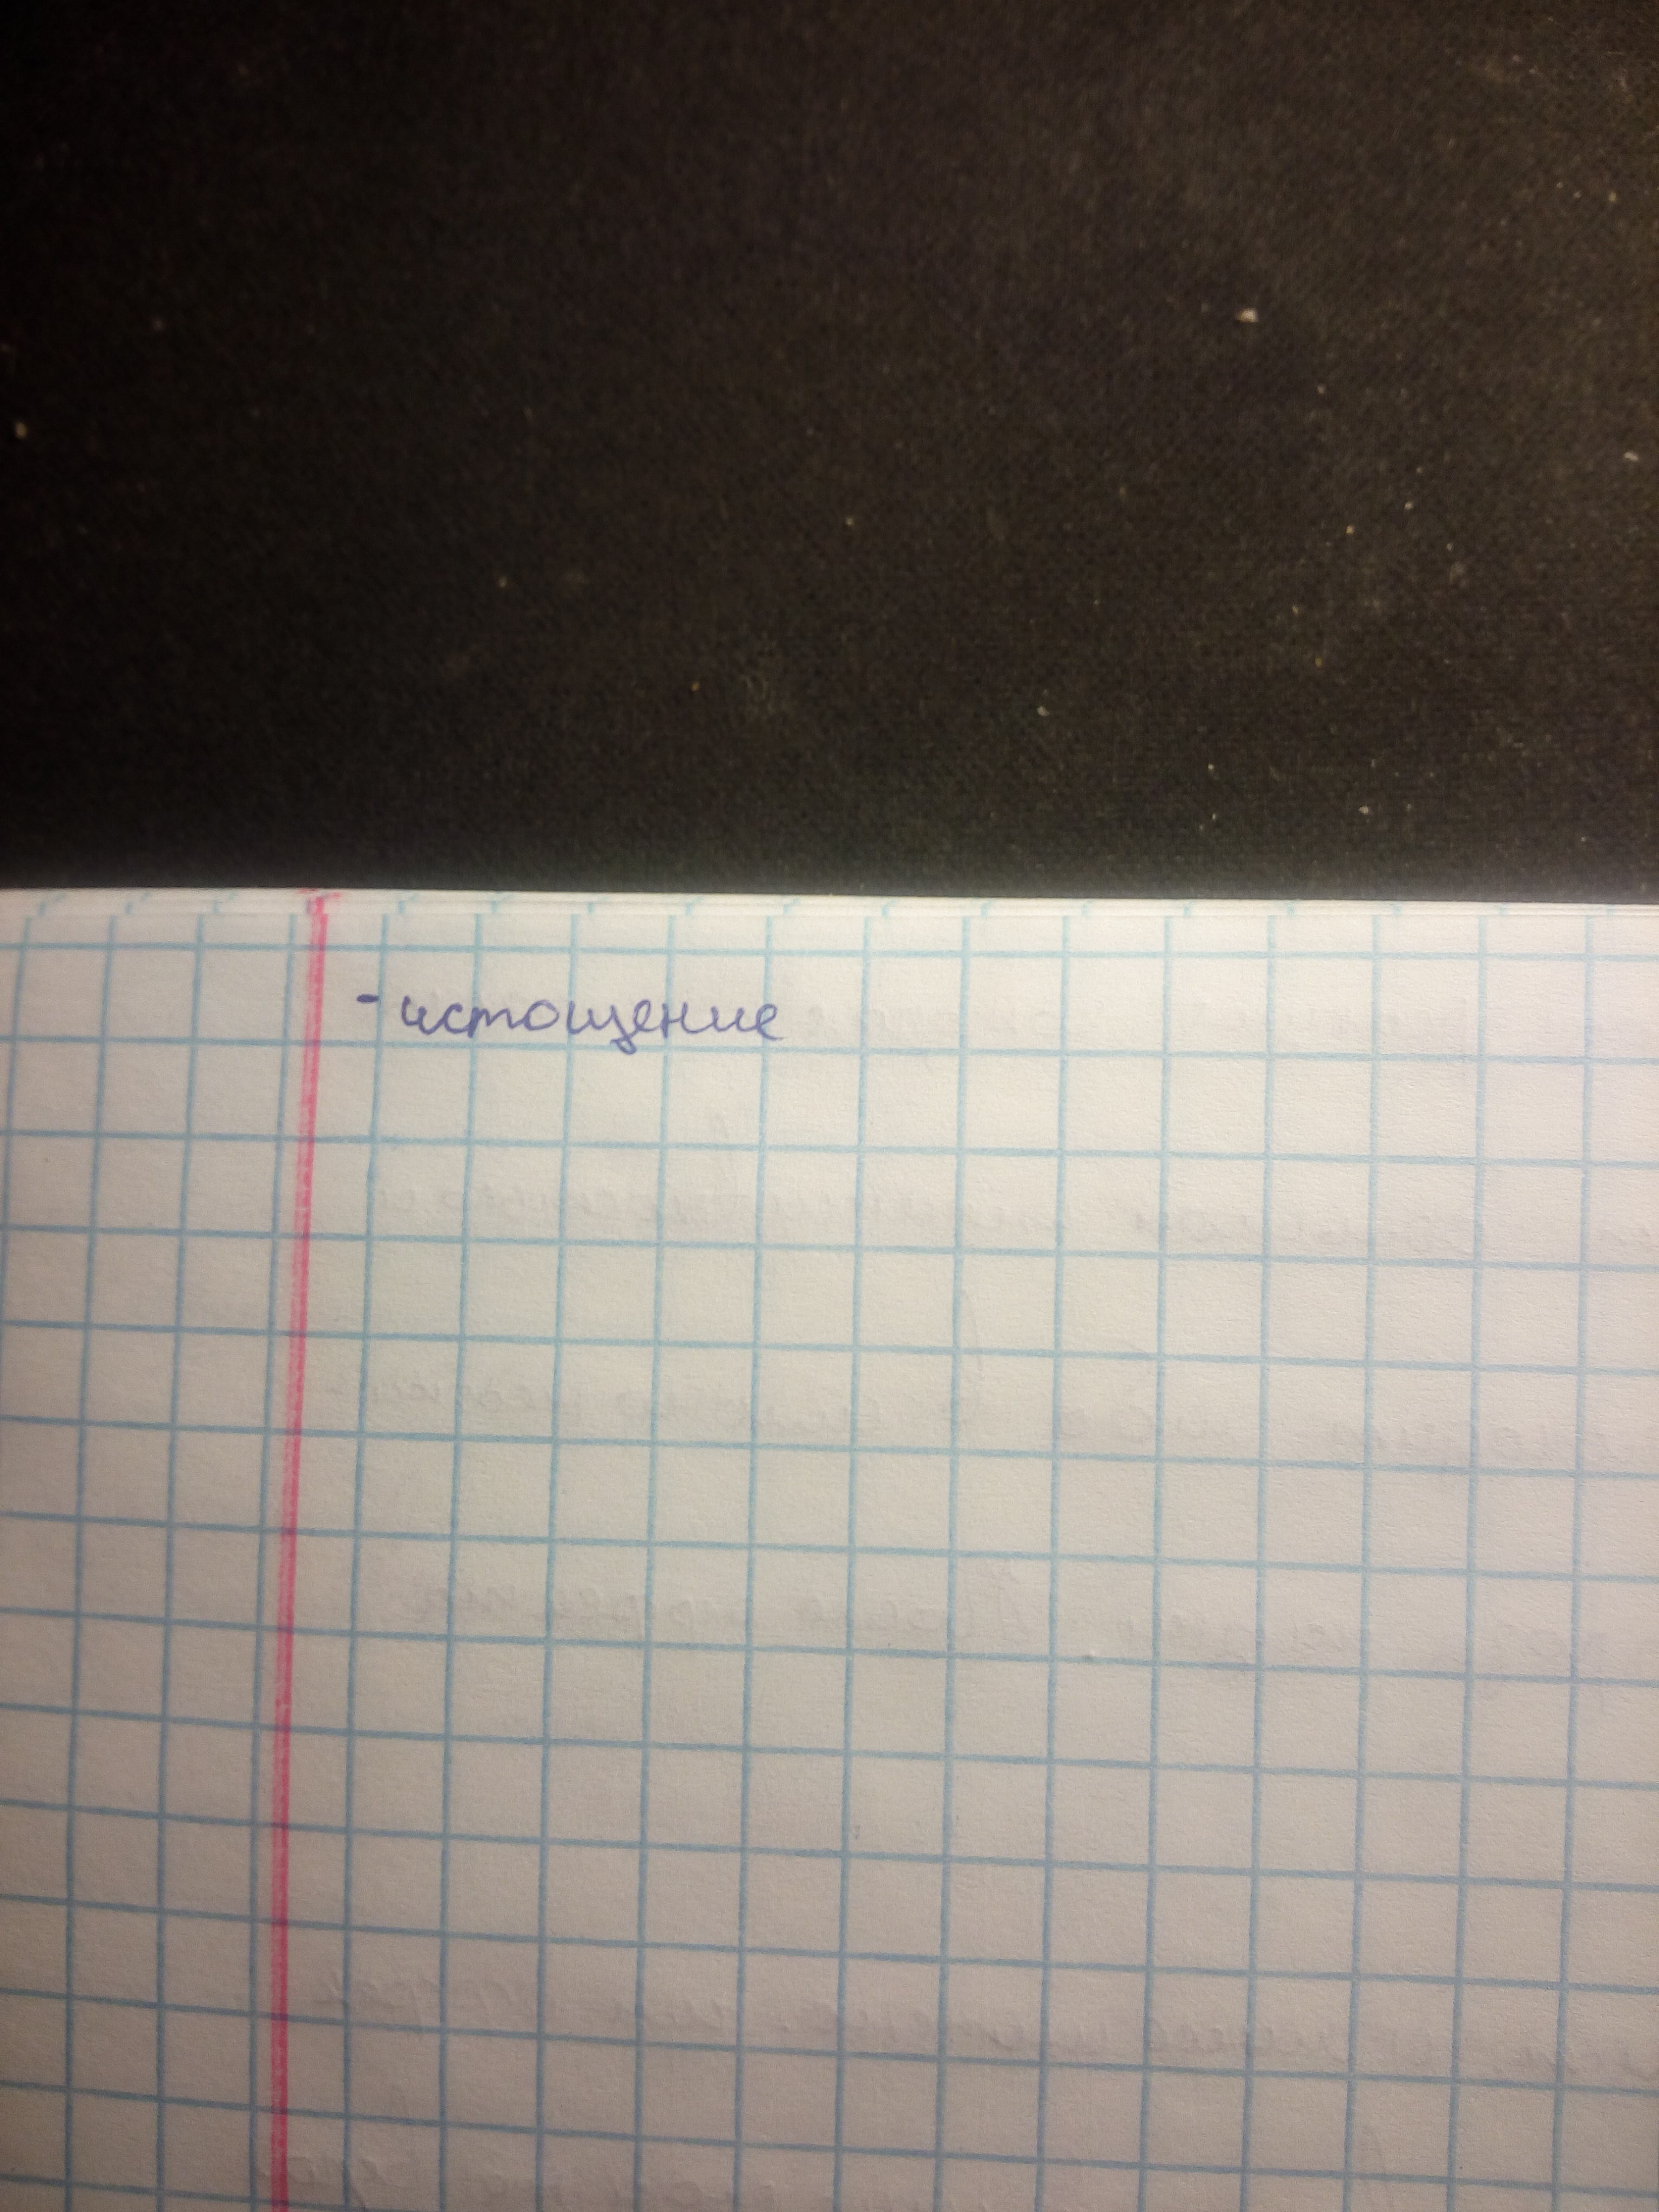 - истощение